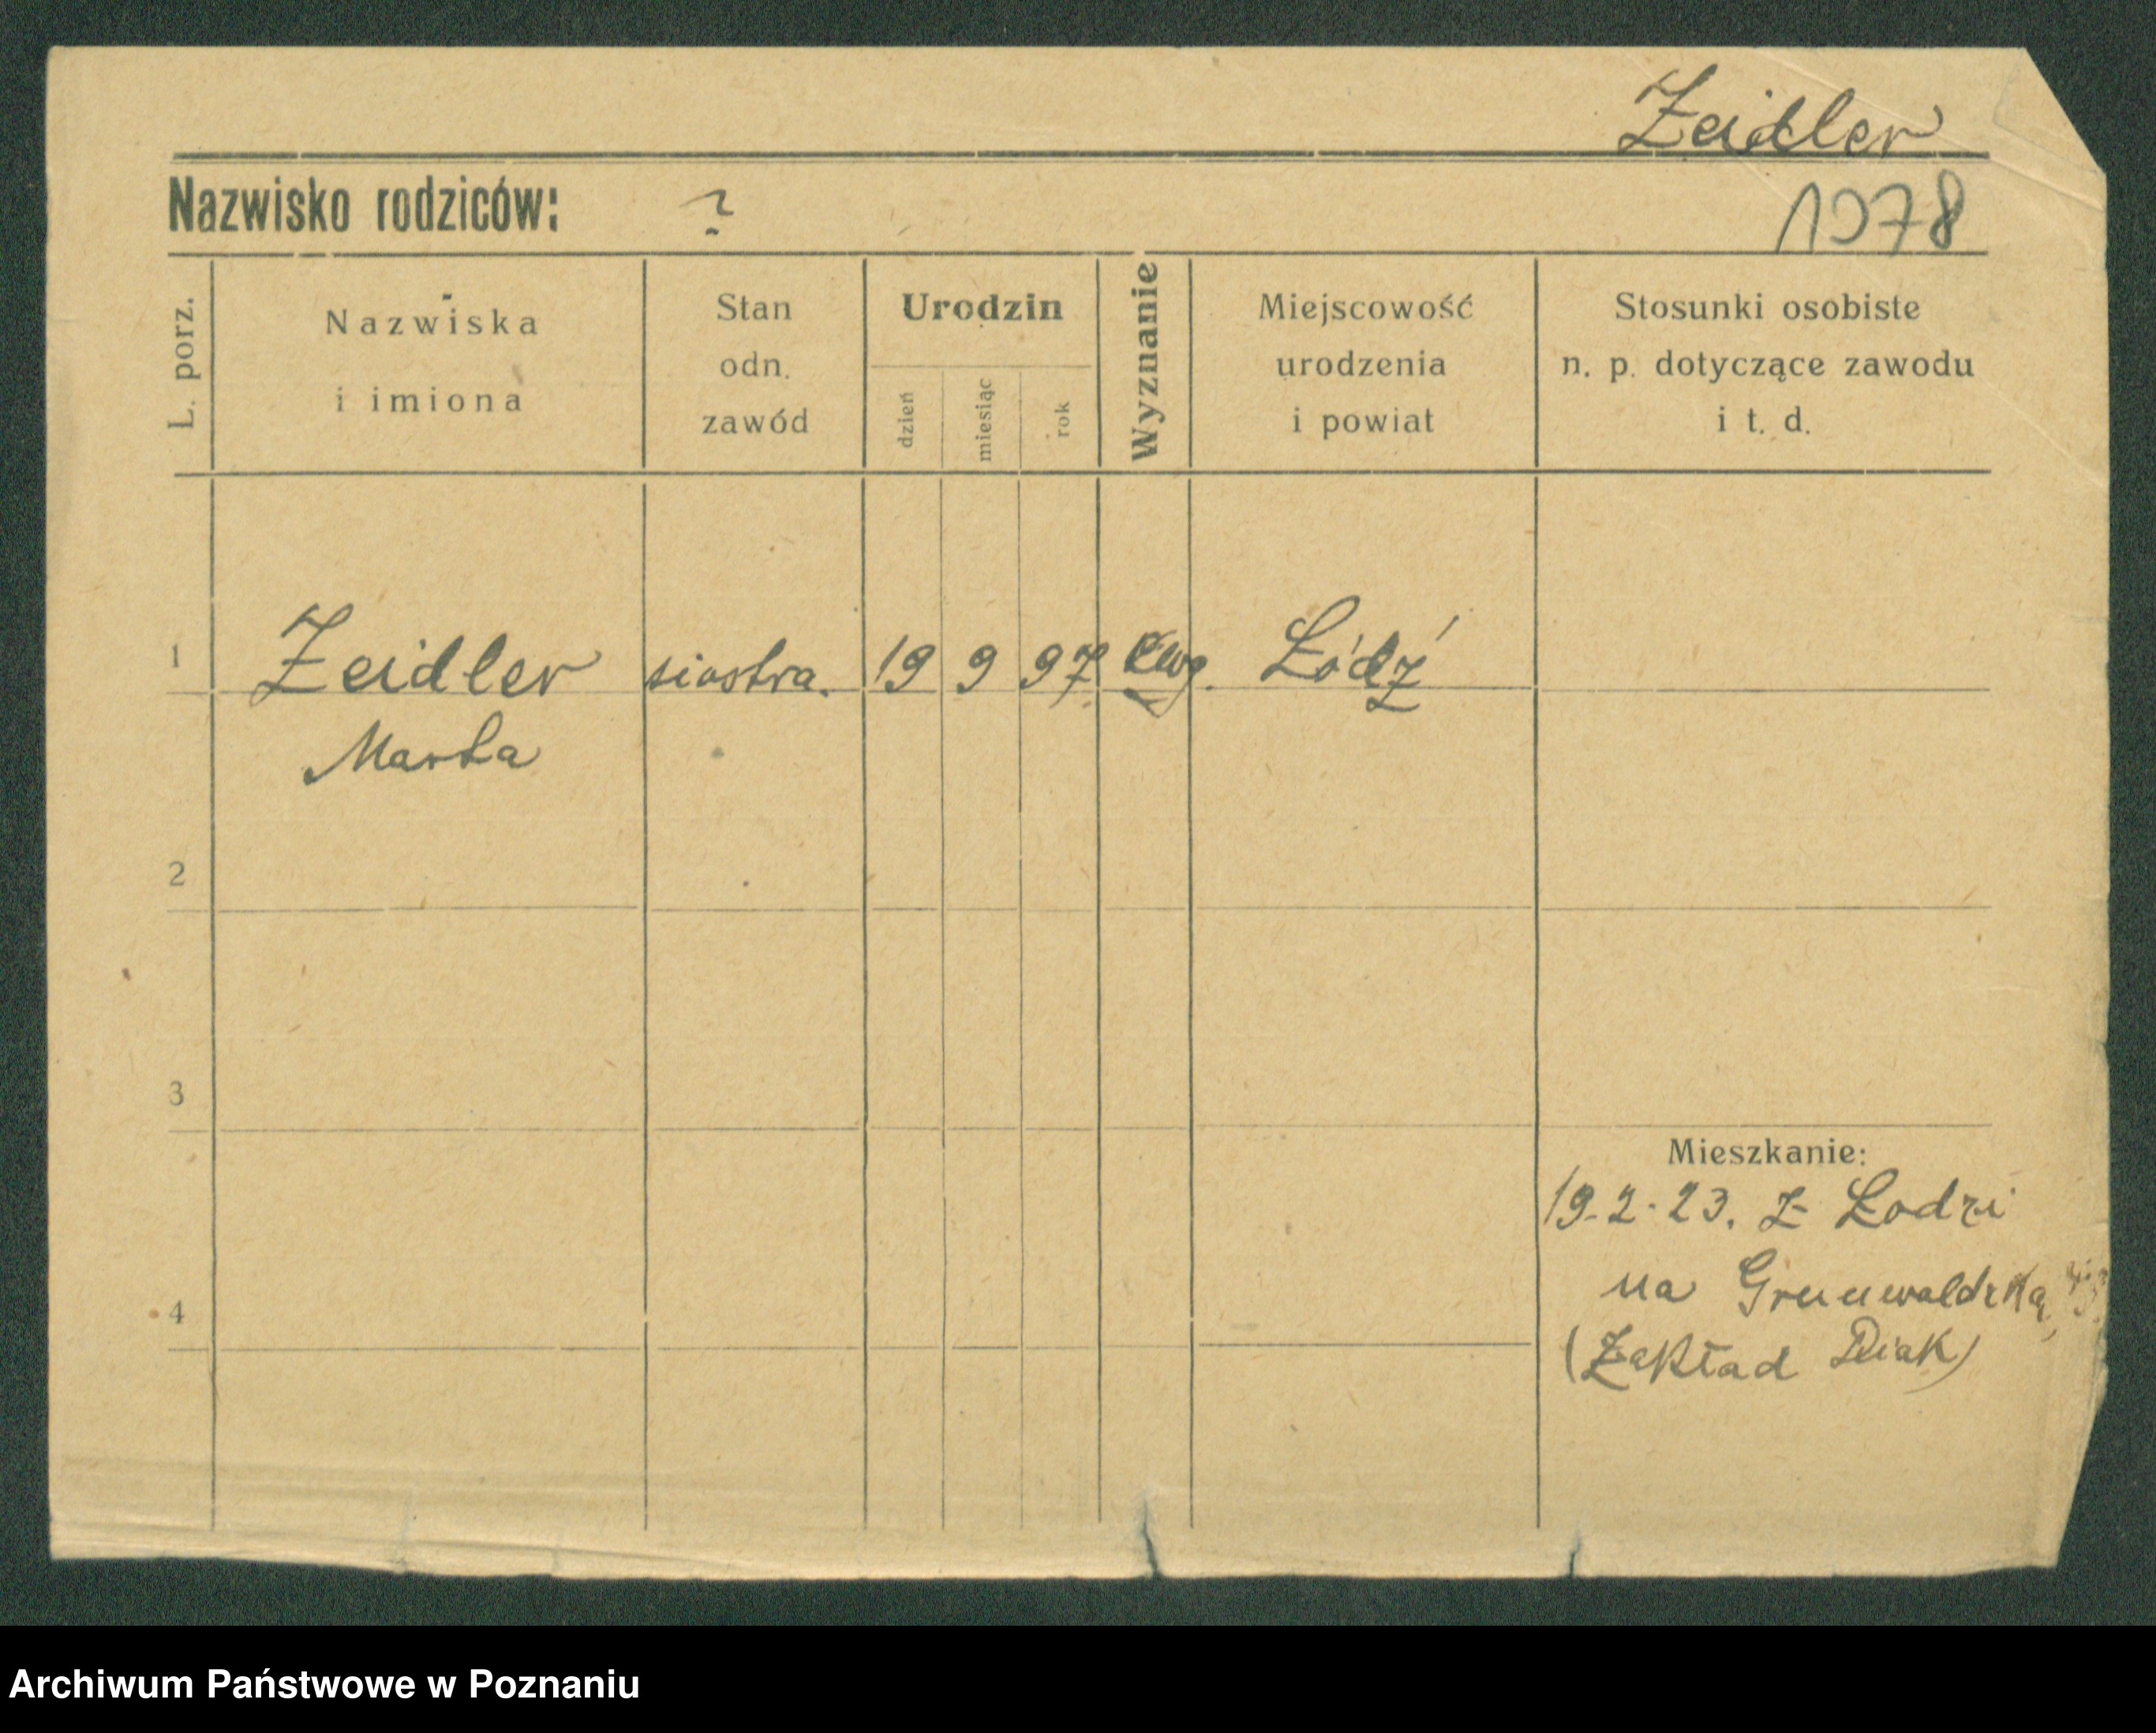 Zeidler
Nazwisko rodziców: ?
1978
L. porz.
Nazwiska
i imiona
Stan
odn.
zawód
Urodzin
dzień
miesiąc
rok
Wyznanie
Miejscowość
urodzenia
i powiat
Stosunki osobiste
n. p. dotyczące zawodu
i t. d.
1 Zeidler siostra. 19 9 97 ewg. Łódź
Marta
2
3
Mieszkanie:
19.2.23. z Łodzi
na Grunwaldzką
4
(Zakład Diak)
Archiwum Państwowe w Poznaniu